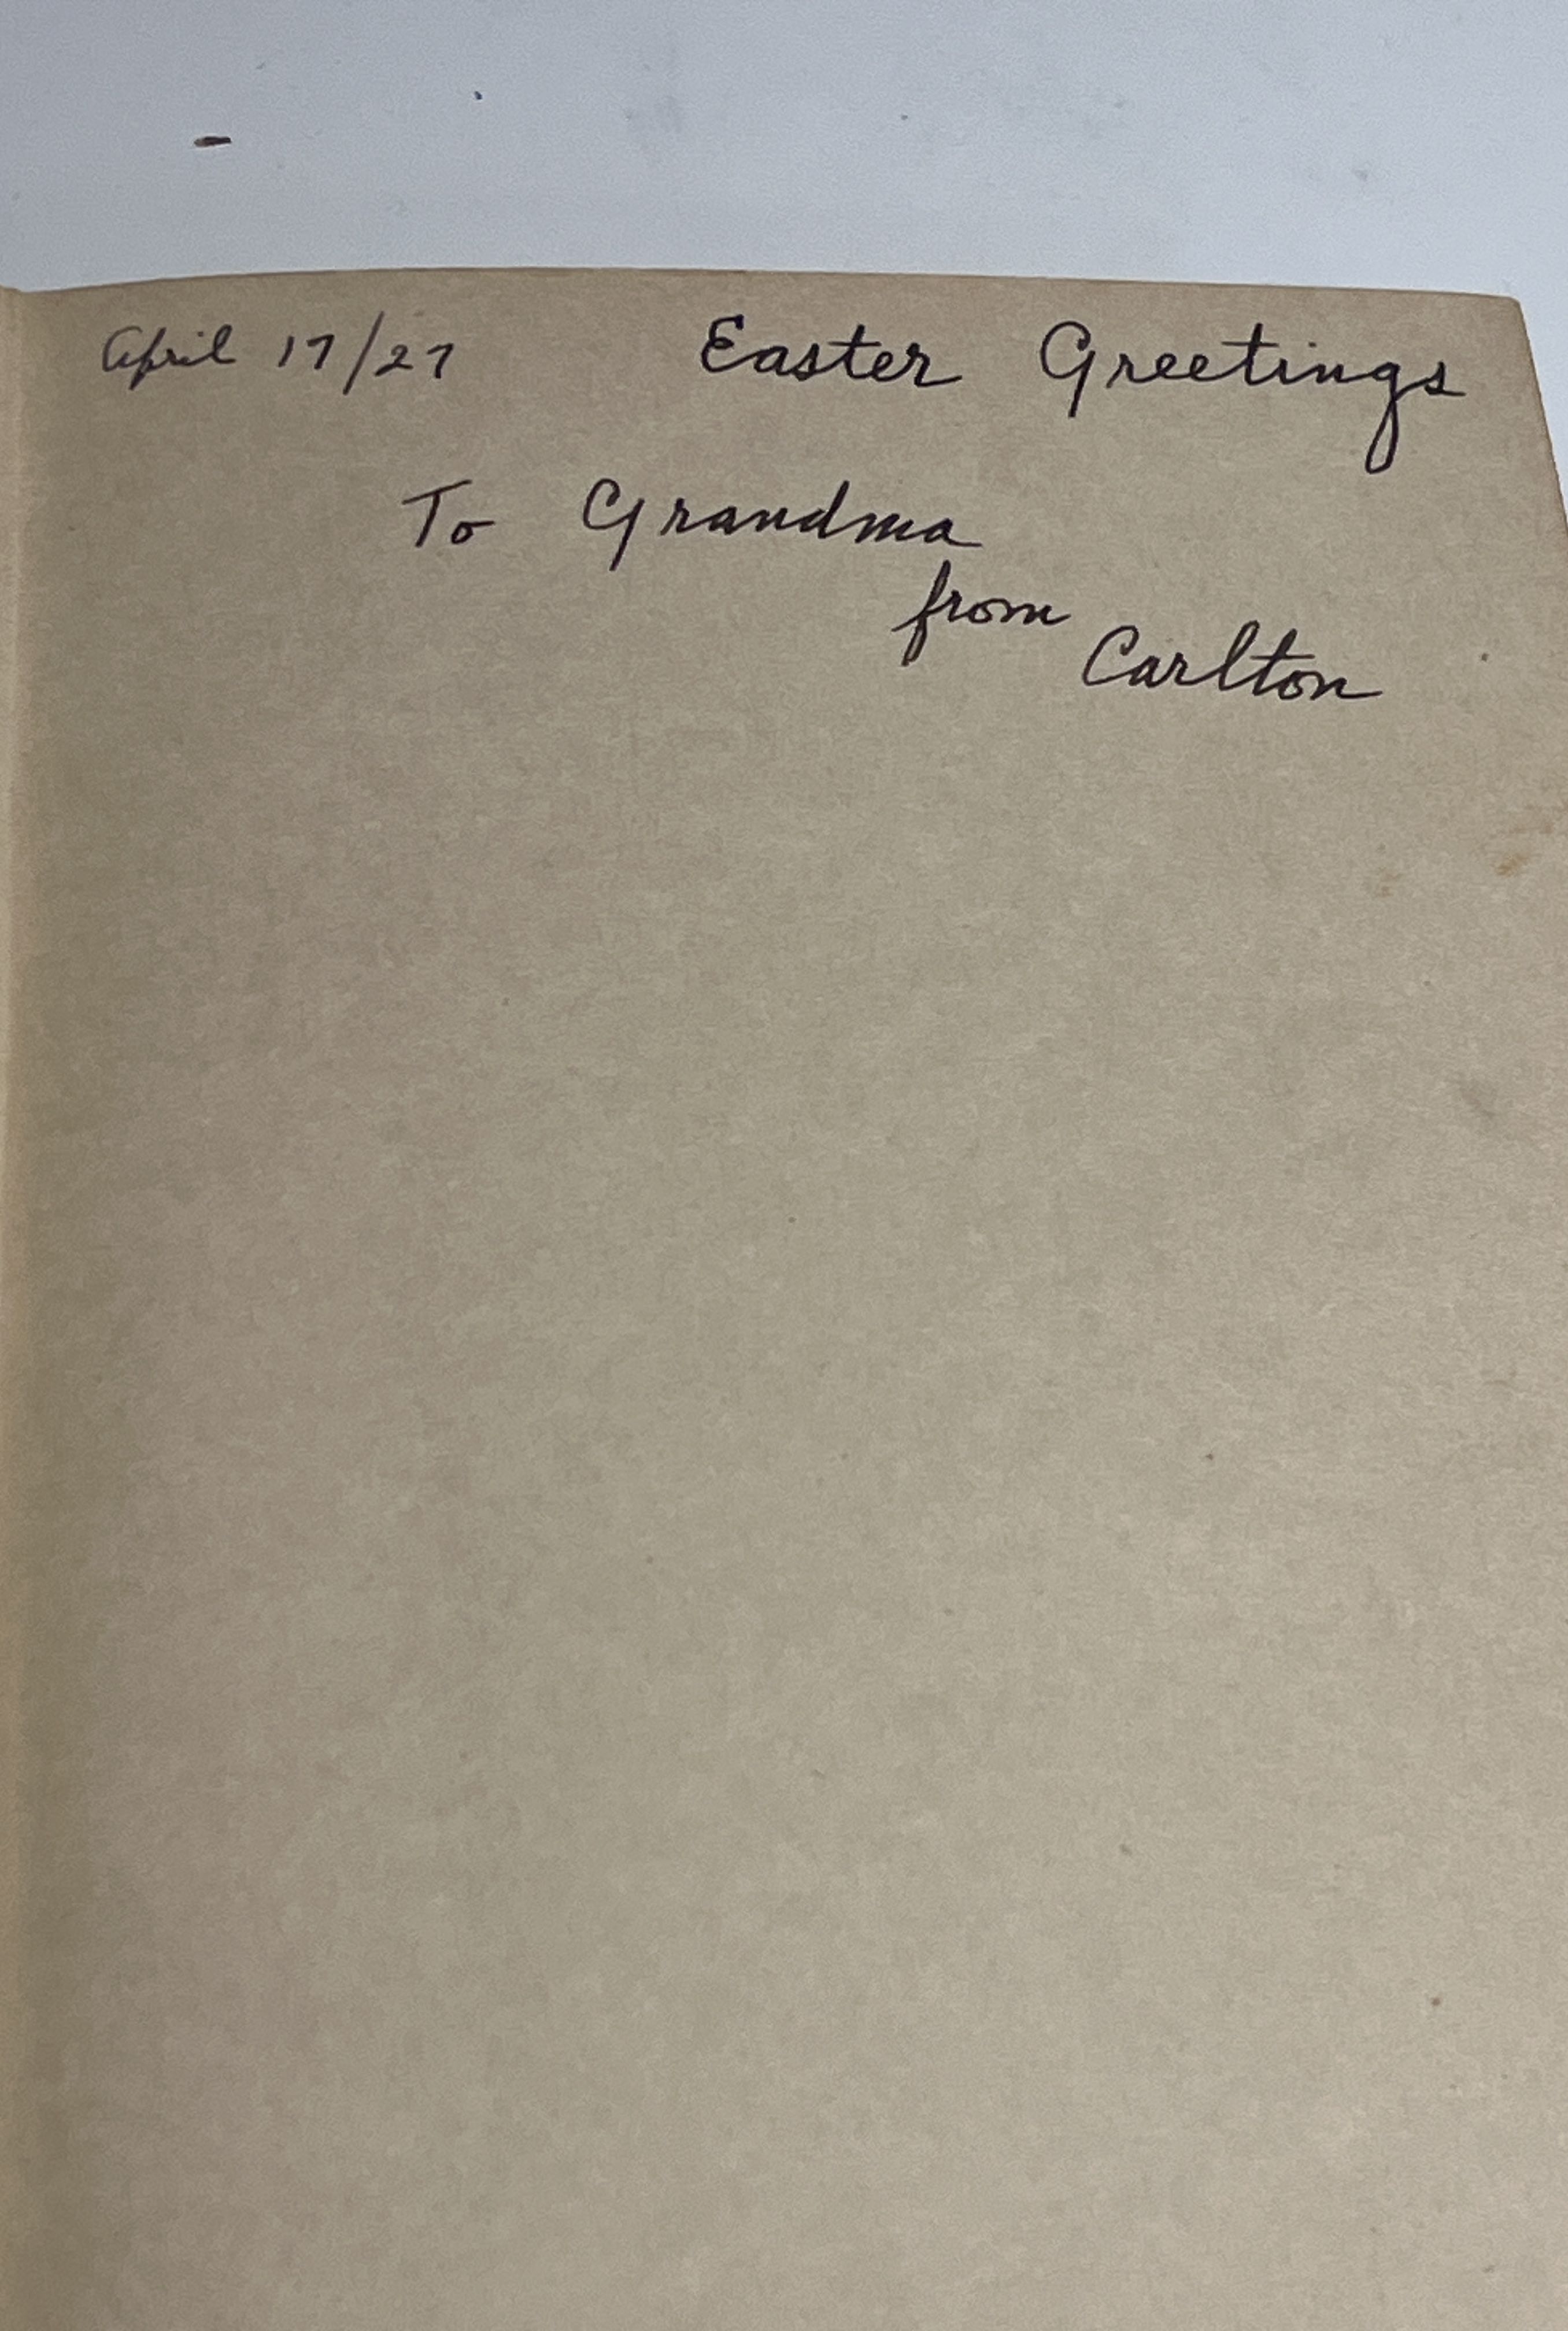 April 17/27 Easter Greetings
To Grandma
from
Carlton